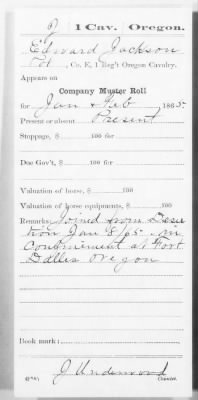 J | 1 Cav. | Oregon.
Edward Jackson
Pvt, Co. E, 1 Reg't Oregon Cavalry.
Appears on
Company Muster Roll
for Jan & Feb, 1865.
Present or absent Present
Stoppage, $ 100 for
Due Gov't, $ 100 for
Valuation of horse, $ 100
Valuation of horse equipments, $ 100
Remarks: Joined from Deser
tion Jan 8/65. in
confinement at Fort
Dalles Oregon
Book mark:
J Underwood
Copyist.